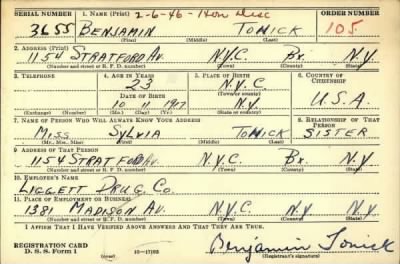 SERIAL NUMBER 1. NAME (Print) 2-6-46 - Hon Disc ORDER NUMBER
3655 BENJAMIN TONICK 105.
(First) (Middle) (Last)
2. ADDRESS (Print)
1154 STRATFORD AV. N.Y.C. BX. N.Y.
(Number and street or R. F. D. number) (Town) (County) (State)
3. TELEPHONE 4. AGE IN YEARS 5. PLACE OF BIRTH 6. COUNTRY OF CITIZENSHIP
23 N.Y.C.
DATE OF BIRTH (Town or county)
10 11 1917 N.Y. U.S.A.
(Exchange) (Number) (Mo.) (Day) (Yr.) (State or country)
7. NAME OF PERSON WHO WILL ALWAYS KNOW YOUR ADDRESS 8. RELATIONSHIP OF THAT PERSON
MISS SYLVIA TONICK SISTER
(Mr., Mrs., Miss) (First) (Middle) (Last)
9. ADDRESS OF THAT PERSON
1154 STRATFORD AV. N.Y.C. BX. N.Y
(Number and street or R. F. D. number) (Town) (County) (State)
10. EMPLOYER'S NAME
LIGGETT DRUG. CO.
11. PLACE OF EMPLOYMENT OR BUSINESS
1381 MADISON AV. N.Y.C. N.Y N.Y
(Number and street or R. F. D. number) (Town) (County) (State)
I AFFIRM THAT I HAVE VERIFIED ABOVE ANSWERS AND THAT THEY ARE TRUE.
REGISTRATION CARD
D. S. S. Form 1 Benjamin Tonick
(Registrant's signature)